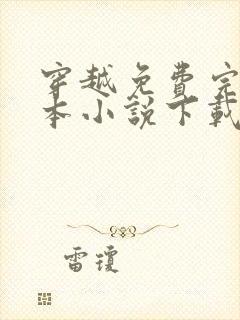 穿越免費完
本小說下載
雷瓊